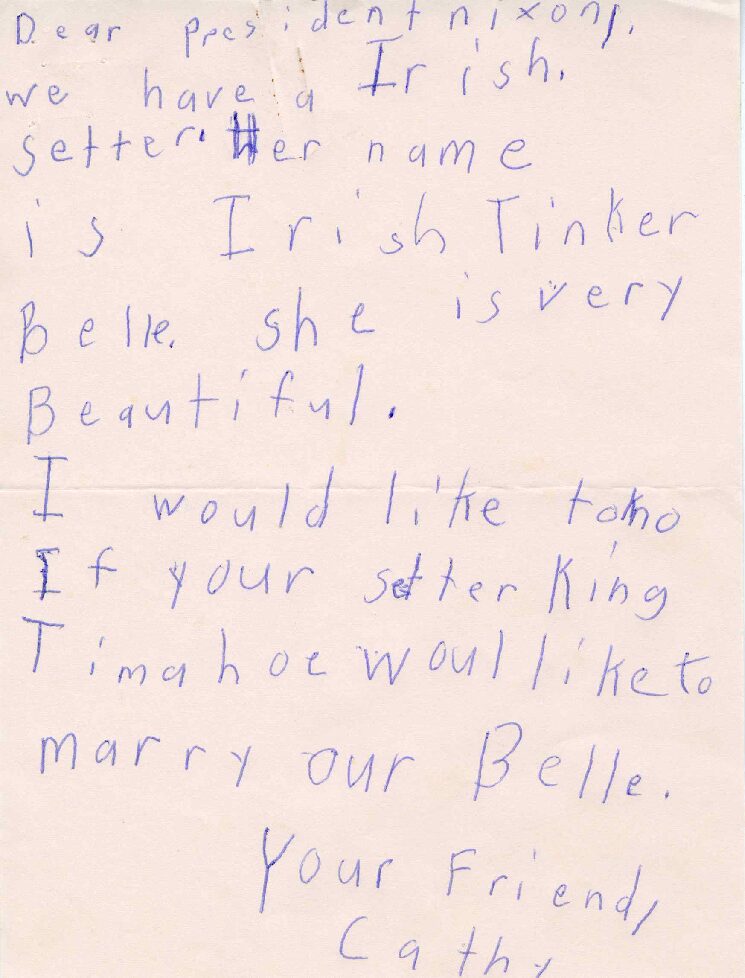 Dear president nixons,
we have a Irish.
setter. Her name
is Irish Tinker
Belle. she is very
Beautiful.
I would like to kno
If your setter King
Timahoe woul like to
marry our Belle.
Your Friend,
Cathy